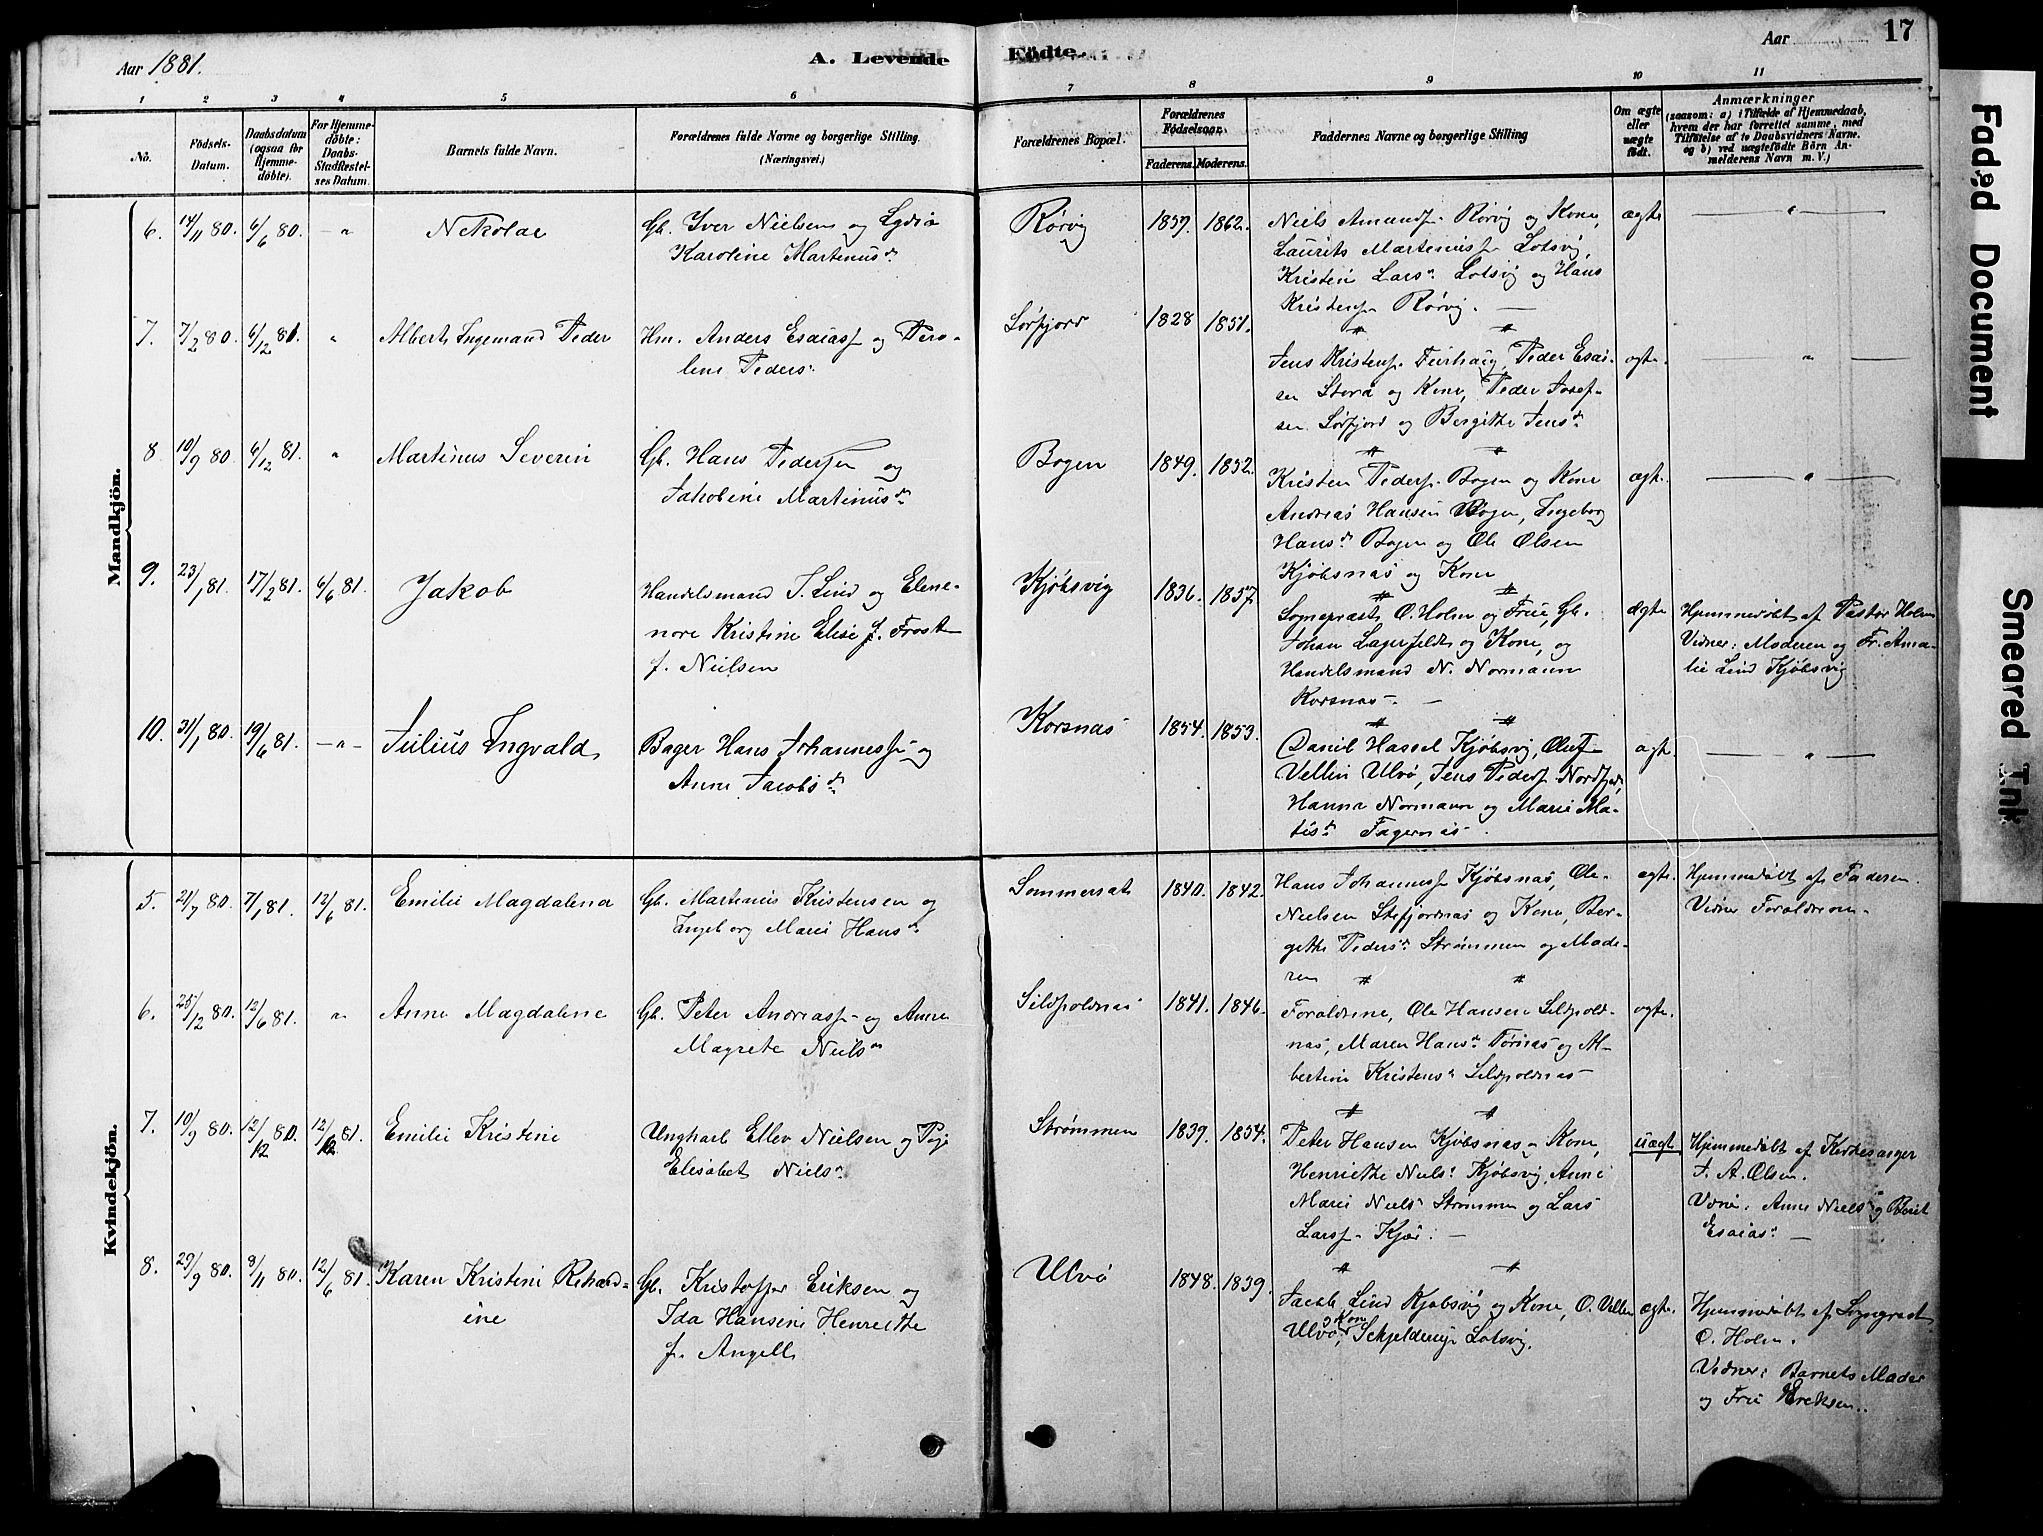 17
Aar 1881.
A. Levende Födte.
Aar
1 2 3 4 5 6 7 8 9 10 11
No.
Födsels-Datum.
Daabsdatum (ogsaa for Hjemme-döbte).
For Hjemme-döbte: Daabs-Stadfæstel-ses Datum.
Barnets fulde Navn.
Forældrenes fulde Navne og borgerlige Stilling.
(Næringsvei.)
Forældrenes Bopæl.
Forældrenes Födselsaar.
Faderens. Moderens.
Faddernes Navne og borgerlige Stilling
Om ægte eller uægte födt.
Anmærkninger
(saasom: a) i Tilfælde af Hjemmedaab, hvem der har forrettet samme, med Tilföielse af to Daabsvidners Navne. og b) ved uægtefödte Börn An-melderens Navn m. V.)
Mandkjön.
6. 14/11 80. 6/6 80. — " Nikolai
Gb. Iver Nielsen og Lydia
Karoline Martinusd.
Rørvig 1859. 1862.
Niels Amunds. Rørvig og Kone,
Laurits Martinuss. Lotsvig
Kristine Larsd. Lotsvig og Hans
Kristens. Rørvig. —
ægte — " —
7. 7/2 80. 6/12 81. " Albert Ingemand Peder
Hm. Anders Esaiass. og Pero-
line Peders.
Sørfjord 1828 1851.
Jens Kristens. Peder Esai-
sen Storå og Kone, Peder Josef-
sen Sørfjord og Bergithe Jensd.
ægte. — " —
8. 10/9 80. 6/12 81. " Martinus Severin
Gb. Hans Pedersen og
Jakobine Martinusd.
Bogen 1849. 1852.
Kristen Peders. Bogen og Kone
Andreas Hansen Bogen, Ingeborg
Hansd. Bogen og Ole Olsen
Kjøbsnæs og Kone
ægte. — " —
9. 23/1 81. 17/2 81. 6/6 81. Jakob
Handelsmand J. Lind og Eleno-
nore Kristine Elise f. Frost
f. Nielsen
Kjøbsvig 1836. 1857.
Sognepræst O. Holm og Frue, Gb.
Johan Lagerfeldt og Kone, og
Handelsmand N. Normann
Korsnæs. —
ægte. Hjemmedøbt af Pastor Holm
Vidner: Moderen og Fr. Ama-
lie Lind Kjøbsvig
10. 31/1 80. 19/6 81. — " — Julius Ingvald
Bager Hans Johanness. og
Anne Jacobsd.
Korsnæs 1854. 1853.
Daniel Hassel Kjøbsvig, Oluf
Vellin Ulvø, Jens Peders. Nordfjord,
Hanna Normann og Marie Ma-
tisd. Fagernæs.
ægte. — " —
Kvindekjön.
5. 21/7 80. 7/1 81. 12/6 81. Emilie Magdalena
Gb. Martinus Kristensen og
Ingeborg Marie Hansd.
Sommerset 1840. 1842.
Hans Johanness. Kjøbsnæs, Ole
Nielsen Stefjordnæs og Kone, Ber-
gitte Pedersd. Strømmen og Mode-
ren
ægte. Hjemmedøbt af Faderen.
Vidner Forældrene.
6. 25/12 80. 12/6 81. " Anne Magdalene
Gb. Peter Andreass. og Anne
Magrete Nielsd.
Sildpoldnæs 1841. 1846.
Forældrene, Ole Hansen Sildpold-
næs, Maren Hansd. Tørnæs og Al-
bertine Kristensd. Sildpoldnæs
ægte.
7. 10/9 80. 12/12 80. 12/6 81. Emilie Kristine
Ungkarl Ellev Nielsen og Pige
Elisabet Nielsd.
Strømmen 1839. 1854.
Peter Hansen Kjøbsnæs og Kone,
Henriethe Niels. Kjøbsvig, Anne
Marie Nielsd. Strømmen og Lars
Larss. Kjær. —
uægte Hjemmedøbt af Kirkesanger
J. A. Olsen.
Vidner: Anne Nielsd. og Berit
Esaiasd. —
8. 29/9 80. 8/11 80. 12/6 81. Karen Kristine Rikard-
ine
Gb. Kristoffer Eriksen og
Ida Hansine Henriette
f. Angell
Ulvø 1848. 1839.
Jacob Lind Kjøbsvig og Kone, O. Vellin
Ulvø og Kone, Schjelderup Lotsvig.
ægte. Hjemmedøbt af Sognepræst
O. Holm.
Vidner: Barnets Moder
og Frue Eriksen.
Faded Document
Smeared Ink